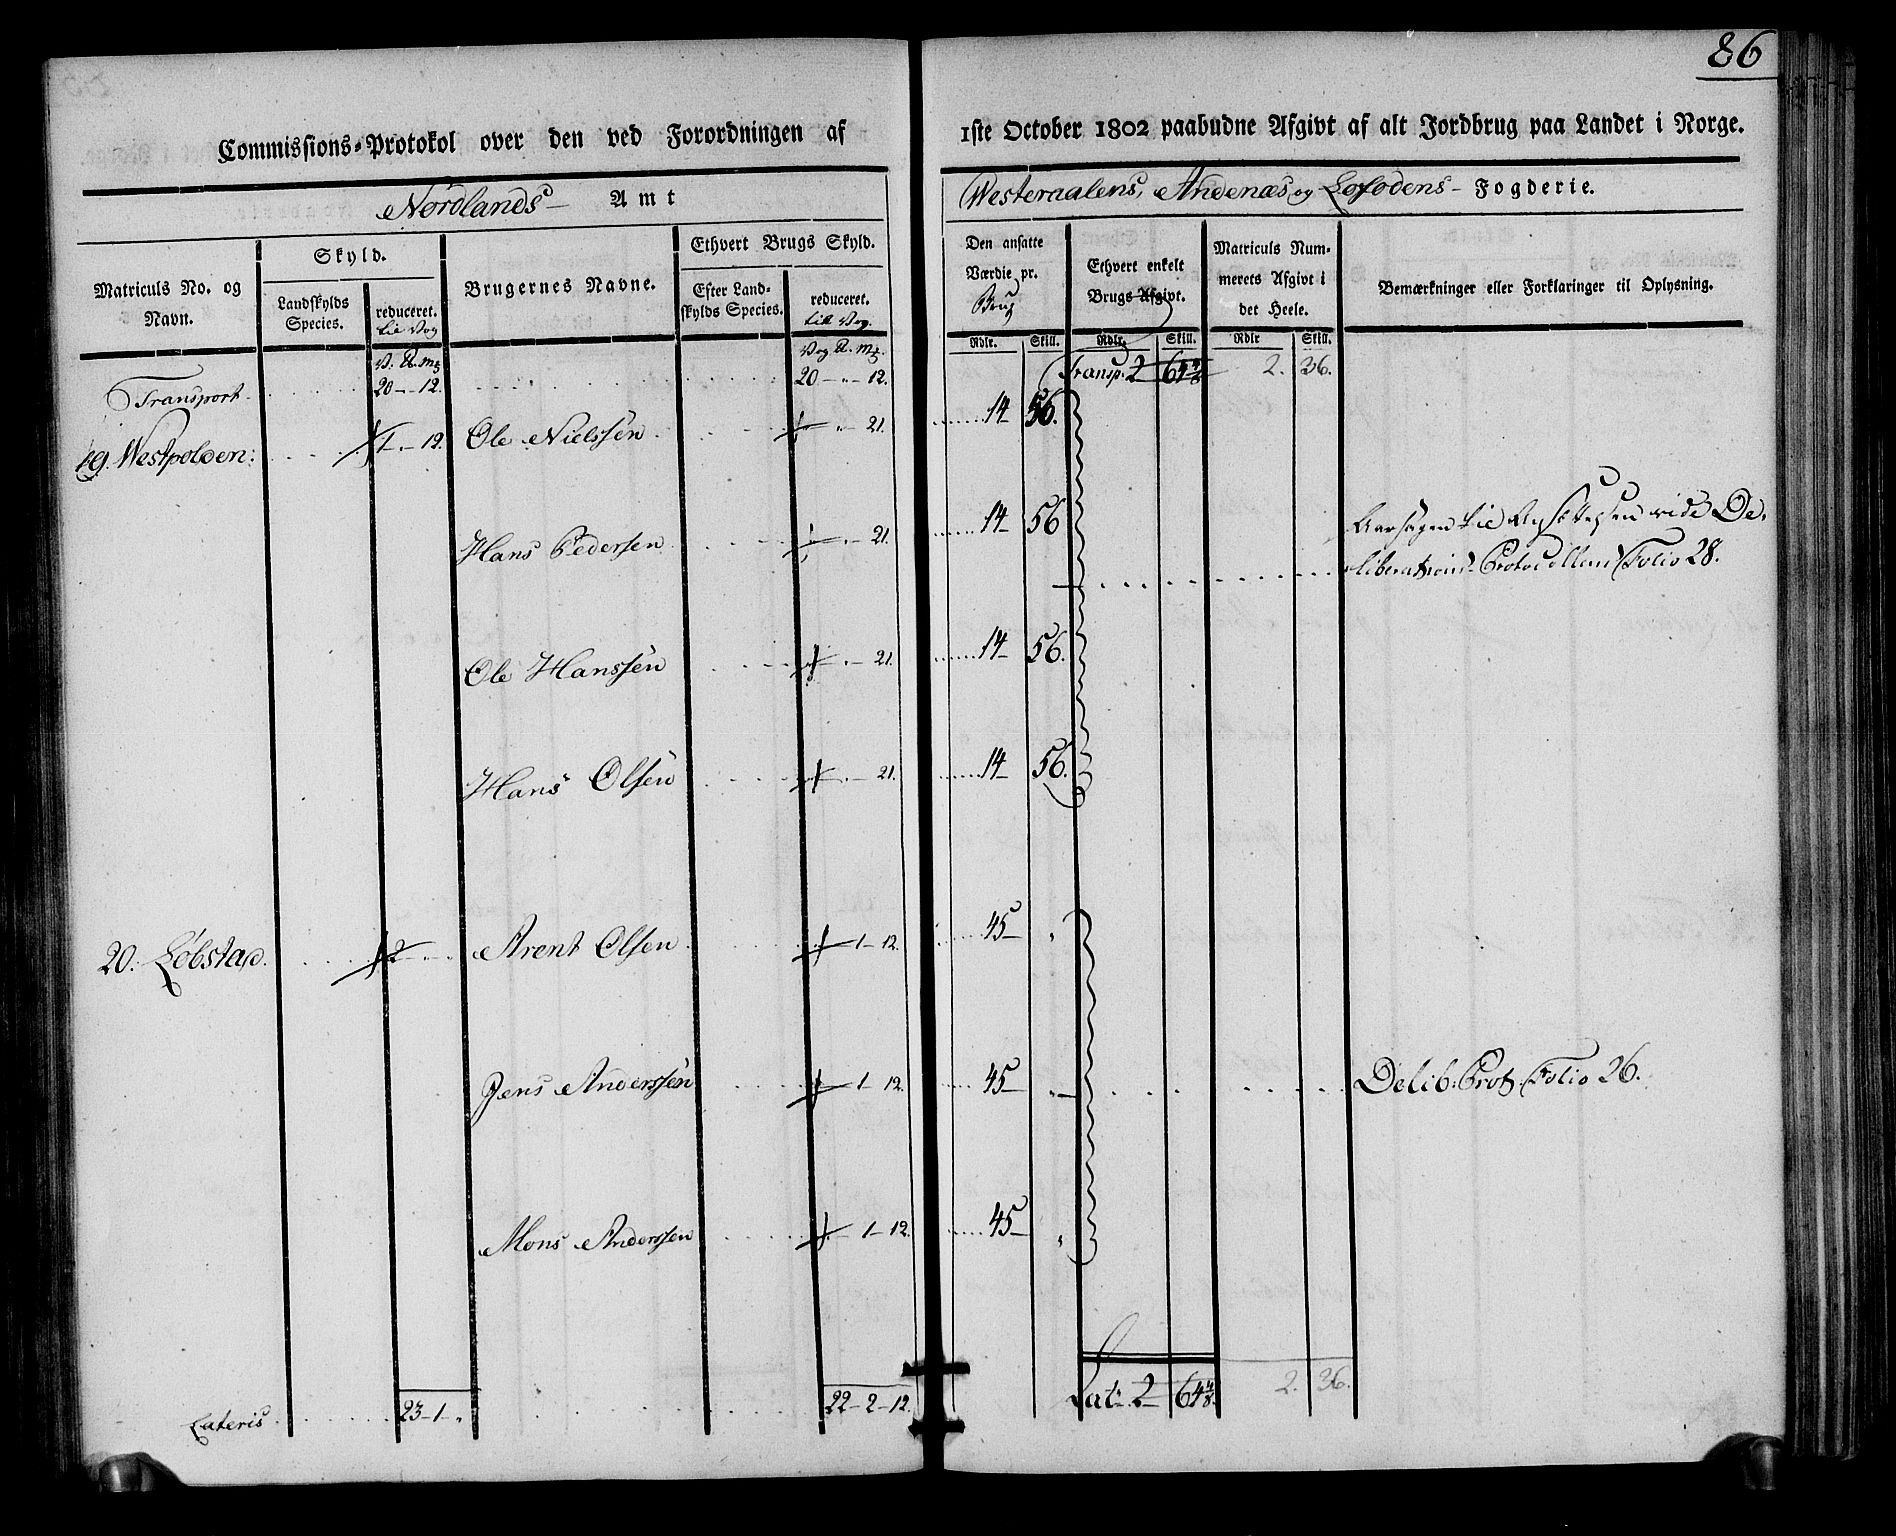 86
Commissions-Protokol over den ved Forordningen af
1ste October 1802 paabudne Afgivt af alt Jordbrug paa Landet i Norge.
Nordlands Amt
Westeraalens, Andenæs og Lofodens Fogderie.
Matriculs No. og Navn.
Skyld.
Landskylds Species.
reduceret. til Vog
Brugernes Navne.
Ethvert Brugs Skyld.
Efter Landskylds Species.
reduceret. til Vog.
Den ansatte Værdie pr. Brug
Ethvert enkelt Brugs Afgivt.
Matriculs Nummerets Afgivt i det Heele.
Bemærkninger eller Forklaringer til Oplysning.
Rdlr. Skill. Rdlr. Skill. Rdlr Skill.
Transport 20 - " - 12. 20 - " - 12. Transp. 2 64 4/8 2. 36.
19. Westpolden: 1 - 12. Ole Nielssen " - 21. 14 56.
Hans Pedersen " - 21. 14 56
Aarsagen til vide De-
liberations-Protocollens Folio 28.
Ole Hanssen " - 21. 14 56.
Hans Olsen " - 21. 14 56.
20. Löbstad. 2 Arent Olsen 1 - 12. 45 "
Jens Anderssen 1 - 12. 45 " Delib: Prot. Folio 26.
Mons Anderssen 1 - 12. 45 "
Lateris 23 - 1 - " 22 - 2 - 12. Lat. 2 64 4/8. 2. 36.